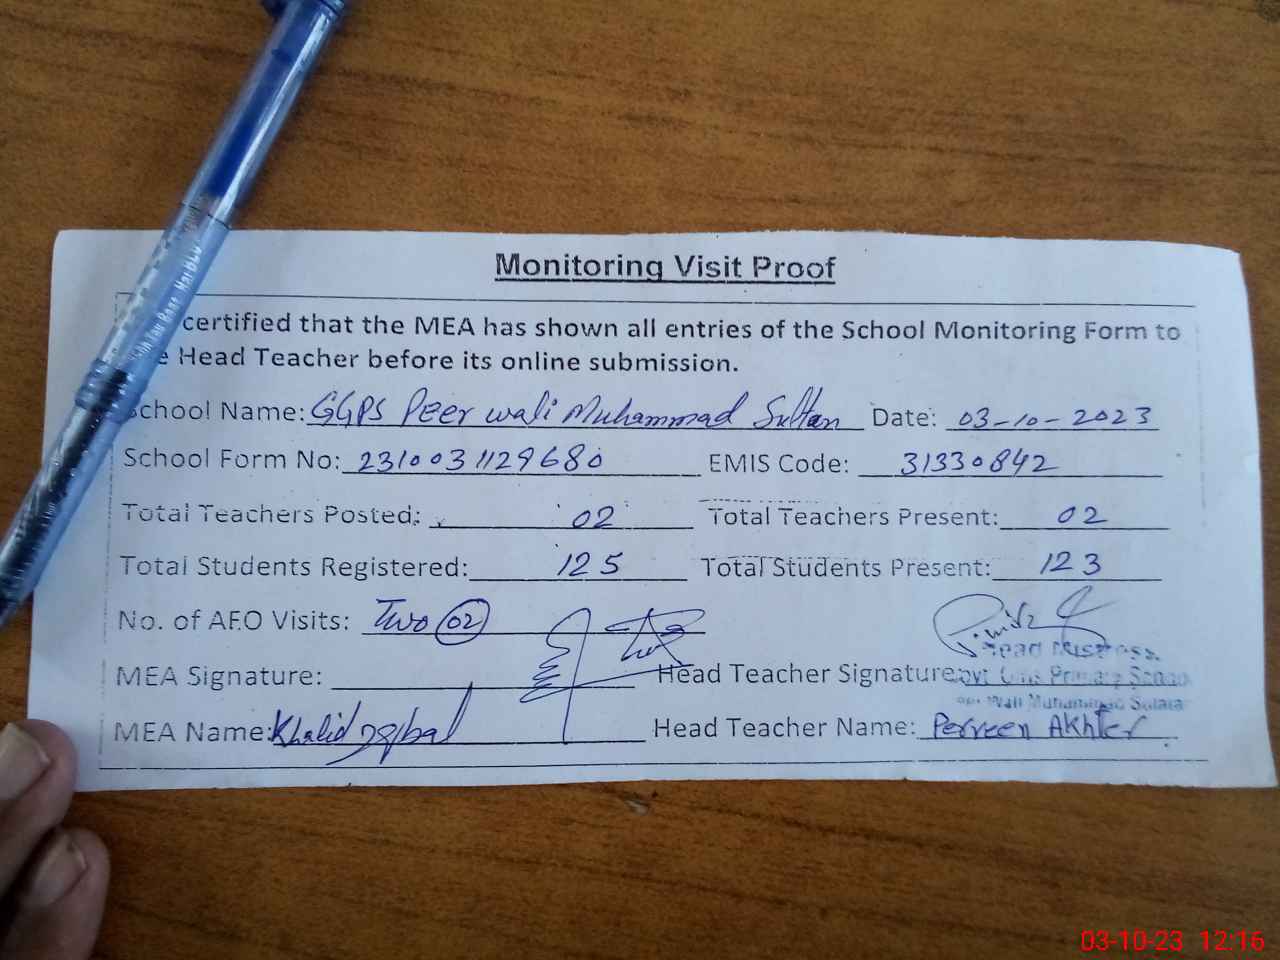 Monitoring Visit Proof
certified that the MEA has shown all entries of the School Monitoring Form to
e Head Teacher before its online submission.
School Name: GGPS Peer wali Muhammad Sultan Date: 03-10-2023
School Form No: 2310031129680 EMIS Code: 31330842
Total Teachers Posted: 02 Total Teachers Present: 02
Total Students Registered: 125 Total Students Present: 123
No. of AEO Visits: Two 02
MEA Signature: Head Teacher Signature
Head Mistress
Govt. Girls Primary School
Wali Muhammad
MEA Name: Khalid Iqbal Head Teacher Name: Perveen Akhter
03-10-23 12:16